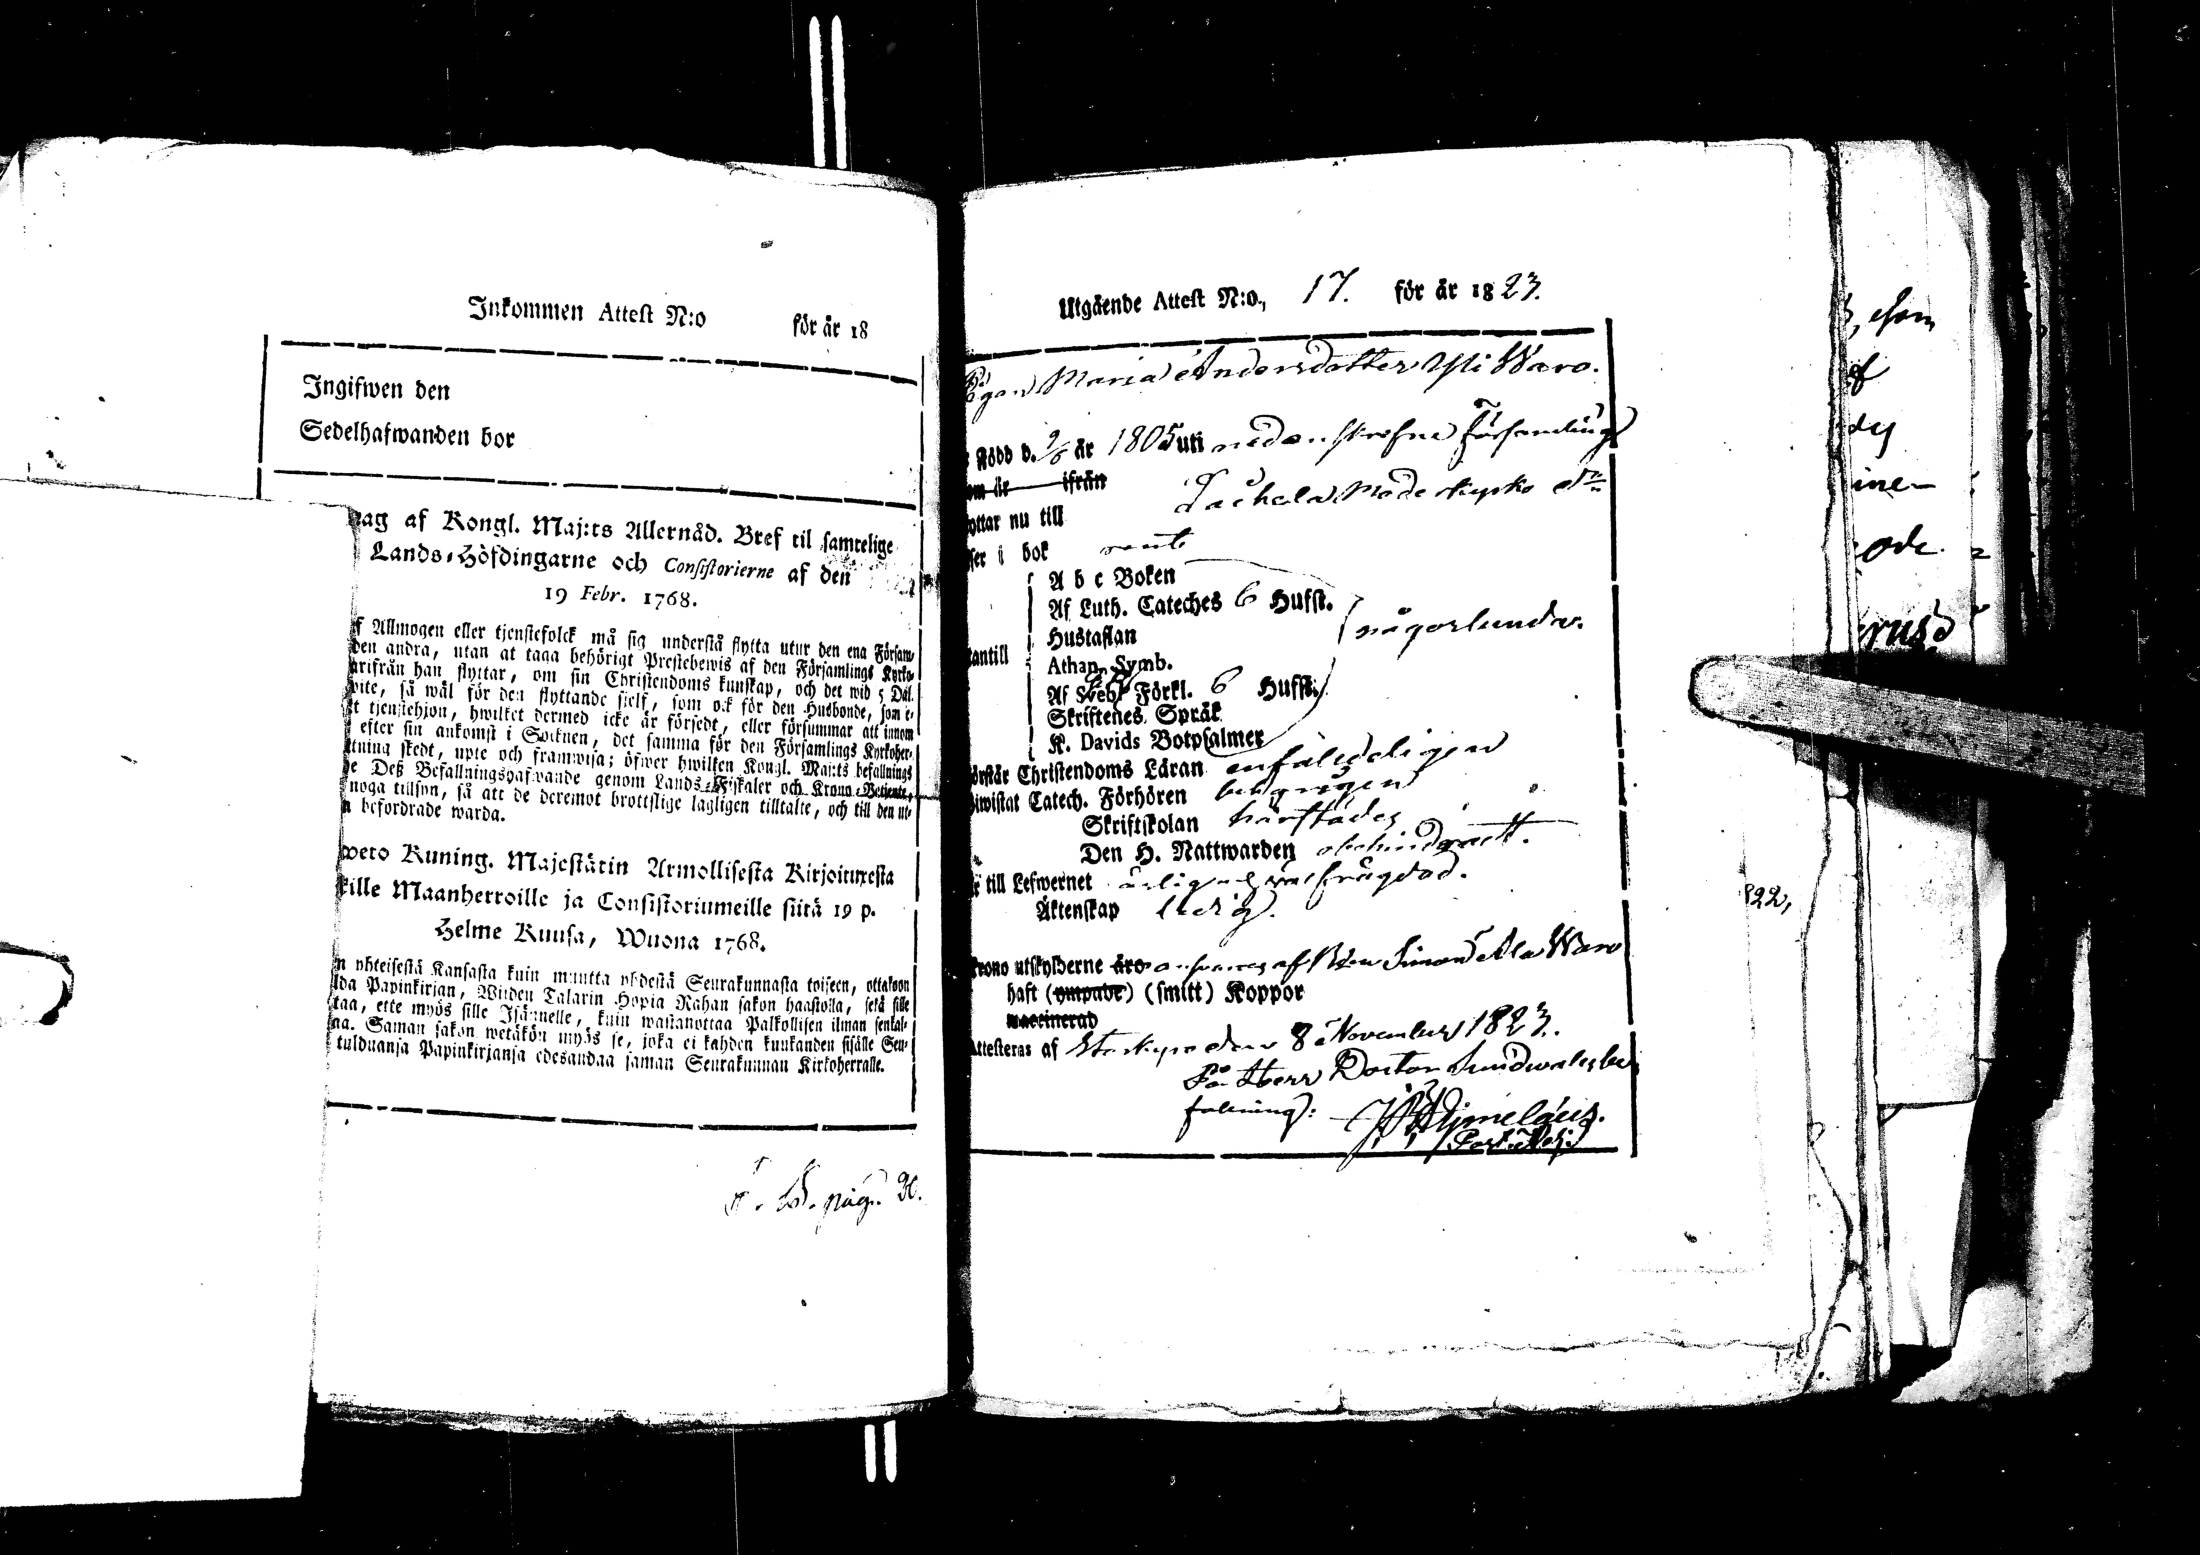 Inkommen Attest N:o för år 18
Ingifwen den
Sedelhafwanden bor
af Kongl. Maj:ts Allernåd. Bref til samtelige
Lands-Höfdingarne och Consistorierne af den
19 Febr. 1768.
Allmogen eller tjenstefolck må sig understå flytta utur den ena Försam-
den andra, utan at taga behörigt Prestebewis af den Församlings Kyrko-
ifrån han flyttar, om sin Christendoms kunskap, och det wid 5 Dal.
wite, så wäl för den flyttande sjelf, som ock för den Husbonde, som e-
tjenstehjon, hwilket dermed icke är försedt, eller försummar att innom
efter sin ankomst i Socknen, det samma för den Församlings Kyrkoher-
skedt, upte och framwisa; öfwer hwilken Kongl. Maj:ts befallnings
Deß Befallningshafwande genom Lands-Fiskaler och Krono-Betjente,
noga tillsyn, så att de deremot brottslige lagligen tilltalte, och till den ut-
befordrade warda.
Kuning. Majestätin Armollisesta Kirjoituxesta
kille Maanherroille ja Consistoriumeille siitä 19 p.
Helme Kuusa, Wuona 1768.
yhteisestä Kansasta kuin muutta yhdestä Seurakunnasta toiseen, ottakoon
Papinkirjan, Wiiden Talarin Hopia Rahan sakon haastolla, sekä sille
taa, ette myös sille Isännelle, kuin wastanottaa Palkollisen ilman senkal-
Saman sakon wetäkön myös se, joka ei kahden kuukauden sisälle Seu-
tulduansa Papinkirjansa edesandaa saman Seurakunnan Kirkoherralle.
pag. 20.
Utgående Attest N:o., 17. för år 1823.
Pigan Maria Andersdotter Yli Waro.
Född d. 9/6 år 1805 uti nedanskrefne Församling
om år ifrån
flyttar nu till Lachala Moderkyrko
ser i bok rent
A b c Boken
Af Luth. Cateches 6 Hufst.
Hustaflan
någorlunda.
utantill
Athan. Symb.
Af Sveb. Förkl. 6 Hufst.
Skriftenes Språk
K. Davids Botpsalmer
Förstår Christendoms Läran enfaldeligen
Biwistat Catech. Förhören
Skriftskolan härstädes
Den H. Nattwarden obehindradt.
är till Lefwernet ärlig och wälfrägdad.
Äktenskap ledig.
Krono utskylderne äro answaras af Simon Ala Waro
haft (ympade) (smitt) Koppor
waccinerad
Attesteras af Storkyro den 8 November 1823.
På Herr Doctor Sundwalls be-
fallning: